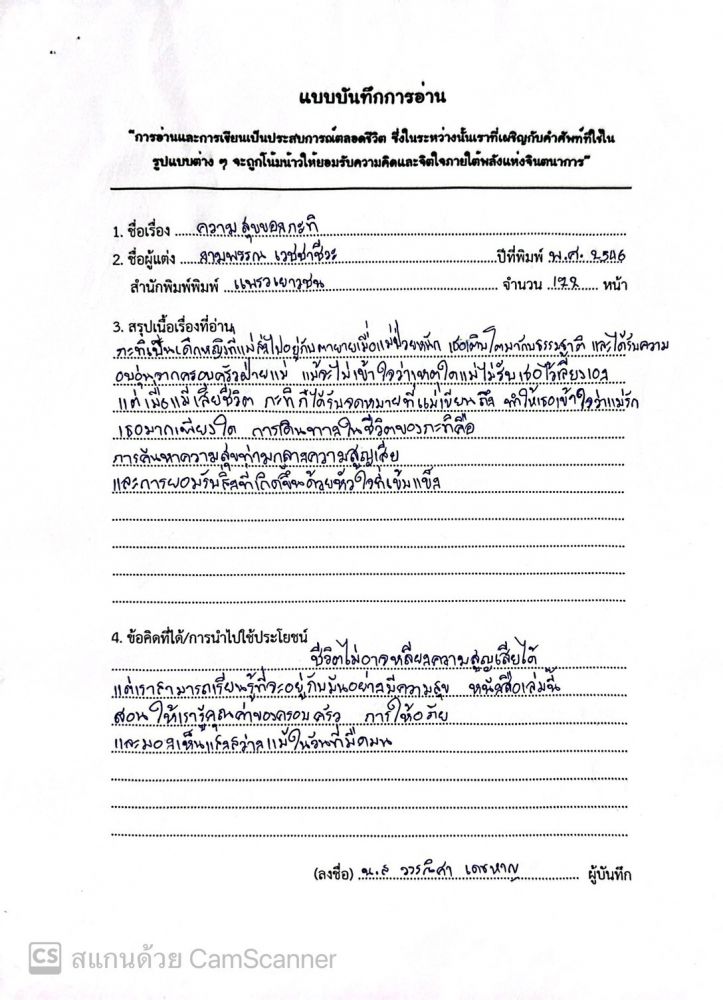 แบบบันทึกการอ่าน
"การอ่านและการเขียนเป็นประสบการณ์ตลอดชีวิต ซึ่งในระหว่างนั้นเราที่เผชิญกับคำศัพท์ที่ใช้ใน
รูปแบบต่าง ๆ จะถูกโน้มน้าวให้ยอมรับความคิดและจิตใจภายใต้พลังแห่งจินตนาการ"
1. ชื่อเรื่อง ความสุขของกะทิ
2. ชื่อผู้แต่ง งามพรรณ เวชชาชีวะ ปีที่พิมพ์ พ.ศ. 2546
สำนักพิมพ์พิมพ์ แพรวเยาวชน จำนวน 122 หน้า
3. สรุปเนื้อเรื่องที่อ่าน
กะทิเป็นเด็กหญิงที่แม่ส่งไปอยู่กับตายายเมื่อแม่ป่วยหนัก เธอเติบโตมากับธรรมชาติ และได้รับความ
อบอุ่นจากครอบครัวฝ่ายแม่ แม้จะไม่เข้าใจว่าเหตุใดแม่ไม่รับเธอไว้เลี้ยงเอง
แต่เมื่อแม่เสียชีวิต กะทิก็ได้รับจดหมายที่แม่เขียนถึง ทำให้เธอเข้าใจว่าแม่รัก
เธอมากเพียงใด การเดินทางในชีวิตของกะทิคือ
การค้นหาความสุขท่ามกลางความสูญเสีย
และการยอมรับสิ่งที่เกิดขึ้นด้วยหัวใจที่เข้มแข็ง
4. ข้อคิดที่ได้/การนำไปใช้ประโยชน์
ชีวิตไม่อาจหลีกเลี่ยงความสูญเสียได้
แต่เราสามารถเรียนรู้ที่จะอยู่กับมันอย่างมีความสุข หนังสือเล่มนี้
สอนให้เรารู้คุณค่าของครอบครัว การให้อภัย
และมองเห็นแสงสว่างแม้ในวันที่มืดมน
(ลงชื่อ) น.ส วรรณิศา เดชหาญ ผู้บันทึก
CS สแกนด้วย CamScanner